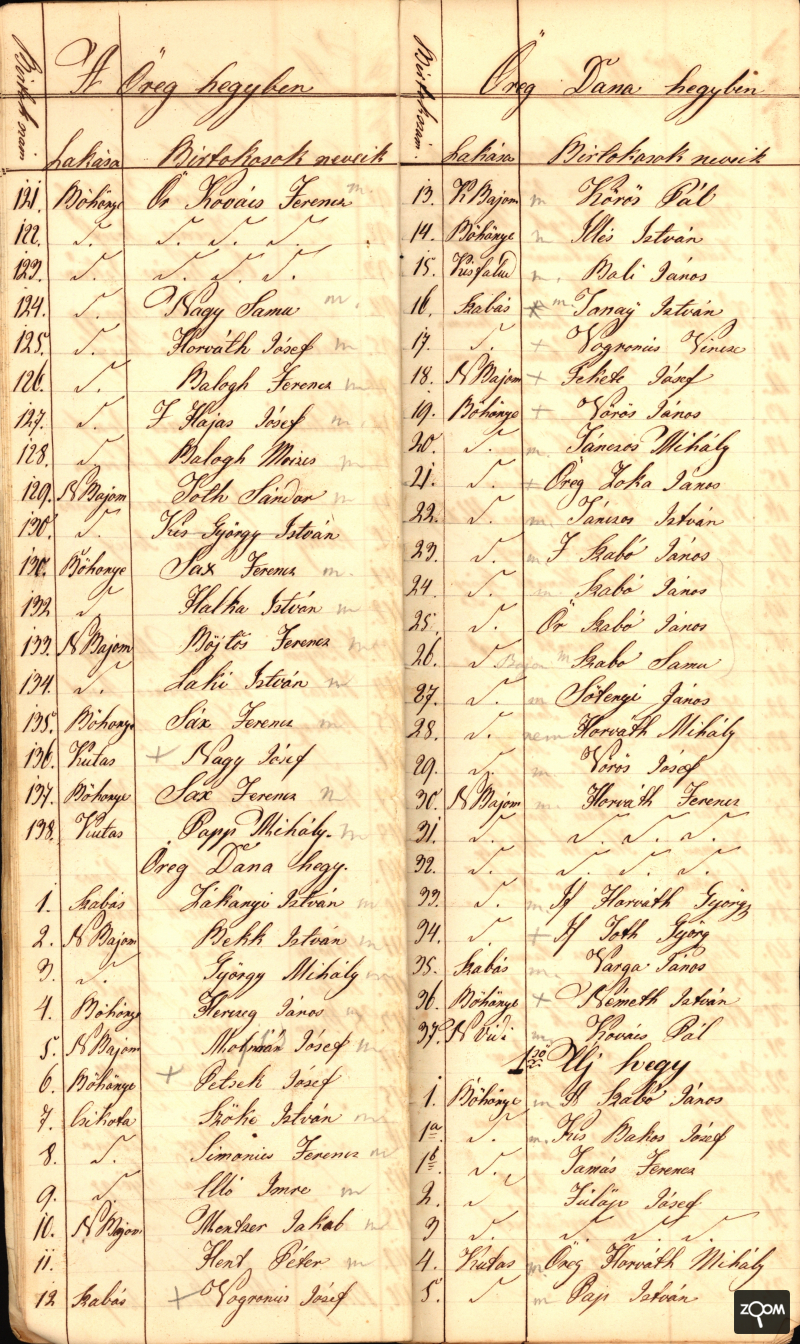 A Öreg hegyben
Lakása Birtokosok neveik
121. Böhönye Ör Kovács Ferencz m.
122. D. D. D. D.
123. D. D. D. D.
124. D. Nagy Samu m.
125. D. Horváth Jósef m
126. D. Balogh Ferencz m
127. D. F Hajas Jósef m.
128. D Balogh Moizes m
129. N Bajom Tóth Sándor m
130. D. Kis György István
130. Böhonye Sax Ferencz m.
132 D Halka István m
133. N Bajom Böjtös Ferencz m
134. D. Laki István m
135. Böhonye Sax Ferencz m
136. Kutas + Nagy Jósef
137. Böhonye Sax Ferencz m
138. Kutas Papp Mihály. m
Öreg Dana hegy.
1. Szabás Zákányi István m
2. N Bajom Bekk István m
3. D. György Mihály m
4. Böhönye Herczeg János m
5. N Bajom Molnán Jósef m
6. Böhönye + Petsek Jósef
7. Csikota Szöke István m
8. D. Simonics Ferencz m
9. D. Illó Imre m
10. N Bajom Mentzer Jakab m
11. Hent Péter m
12 Szabás + Vogronics Jósef
Öreg Dana hegyben
Lakása Birtokosok neveik
13. K Bajom m Körös Pál
14. Böhönye m Illés István
15. Kisfalud m. Bali János
16. Szabás + m. Tanaÿ István
17. D. + Vogronics Vincze
18. N Bajom + Fekete Jósef
19. Böhönye + Vörös János
20. D. m. Jánczos Mihály
21. D. + Öreg Zoka János
22. D. m. Jánczos István
23. D. m F Szabó János
24 D. m Szabó János
25. D. Ör Szabó János
26. D. m Szabo Samu
27. D. m Sötenyi János
28 D. nem Horváth Mihály
29. D. m Vörös Jósef
30. N Bajom m. Horváth Ferencz
31. D. D. D. D.
32. D. D. D. D.
33. D. m If Horváth György
34. D. + If Toth Györg
35. Szabás m. Varga János
36. Böhönye + Németh István
37. N Vidi m Kovács Pál
Uj hegy
1. Böhönye m A Szabó János
1a D. m. Kis Bakos Jósef
1b D. Tamás Ferencz
2. D Fülöp Jósef
3 D. D. D. D.
4. Kutas m. Öreg Horváth Mihály
5. D m Pap István
ZOOM